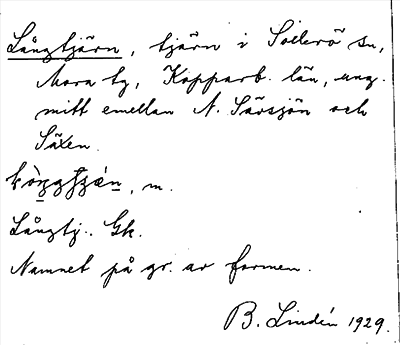 Långtjärn, tjärn i Sollerösn,
Mora tg, Kopparb. län, ung.
mitt emellan N. Särsjön och
Säxen.
m.
Långtj.. Gk.
Namnet på gr. av formen.
B. Lindén 1929.